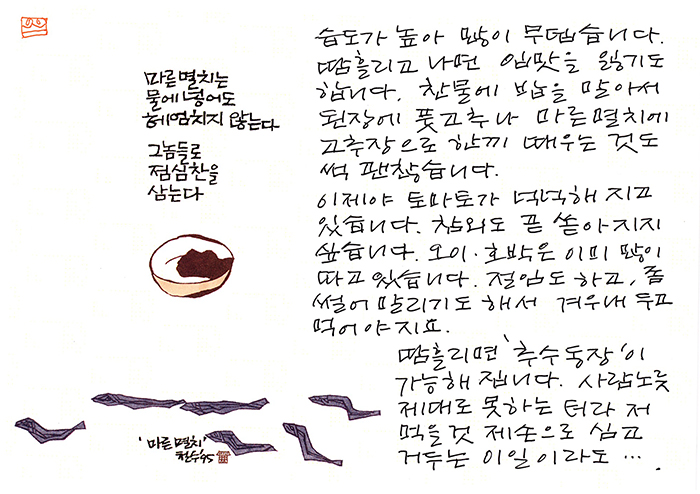 마른멸치는
물에 넣어도
헤엄치지 않는다
그놈들로
점심찬을
삼는다
'마른멸치'
철수'95
습도가 높아 많이 무덥습니다.
땀흘리고 나면 입맛을 잃기도
합니다. 찬물에 밥을 말아서
된장에 풋고추나 마른멸치에
고추장으로 한끼 때우는 것도
썩 괜찮습니다.
이제야 토마토가 넉넉해 지고
있습니다. 참외도 곧 쏟아지지
싶습니다. 오이·호박은 이미 많이
따고 있습니다. 절임도 하고, 좀
썰어 말리기도 해서 겨우내 두고
먹어야지요.
땀흘리면 '추수동장'이
가능해 집니다. 사람노릇
제대로 못하는 터라 저
먹을것 제손으로 심고
거두는 이일이라도 …